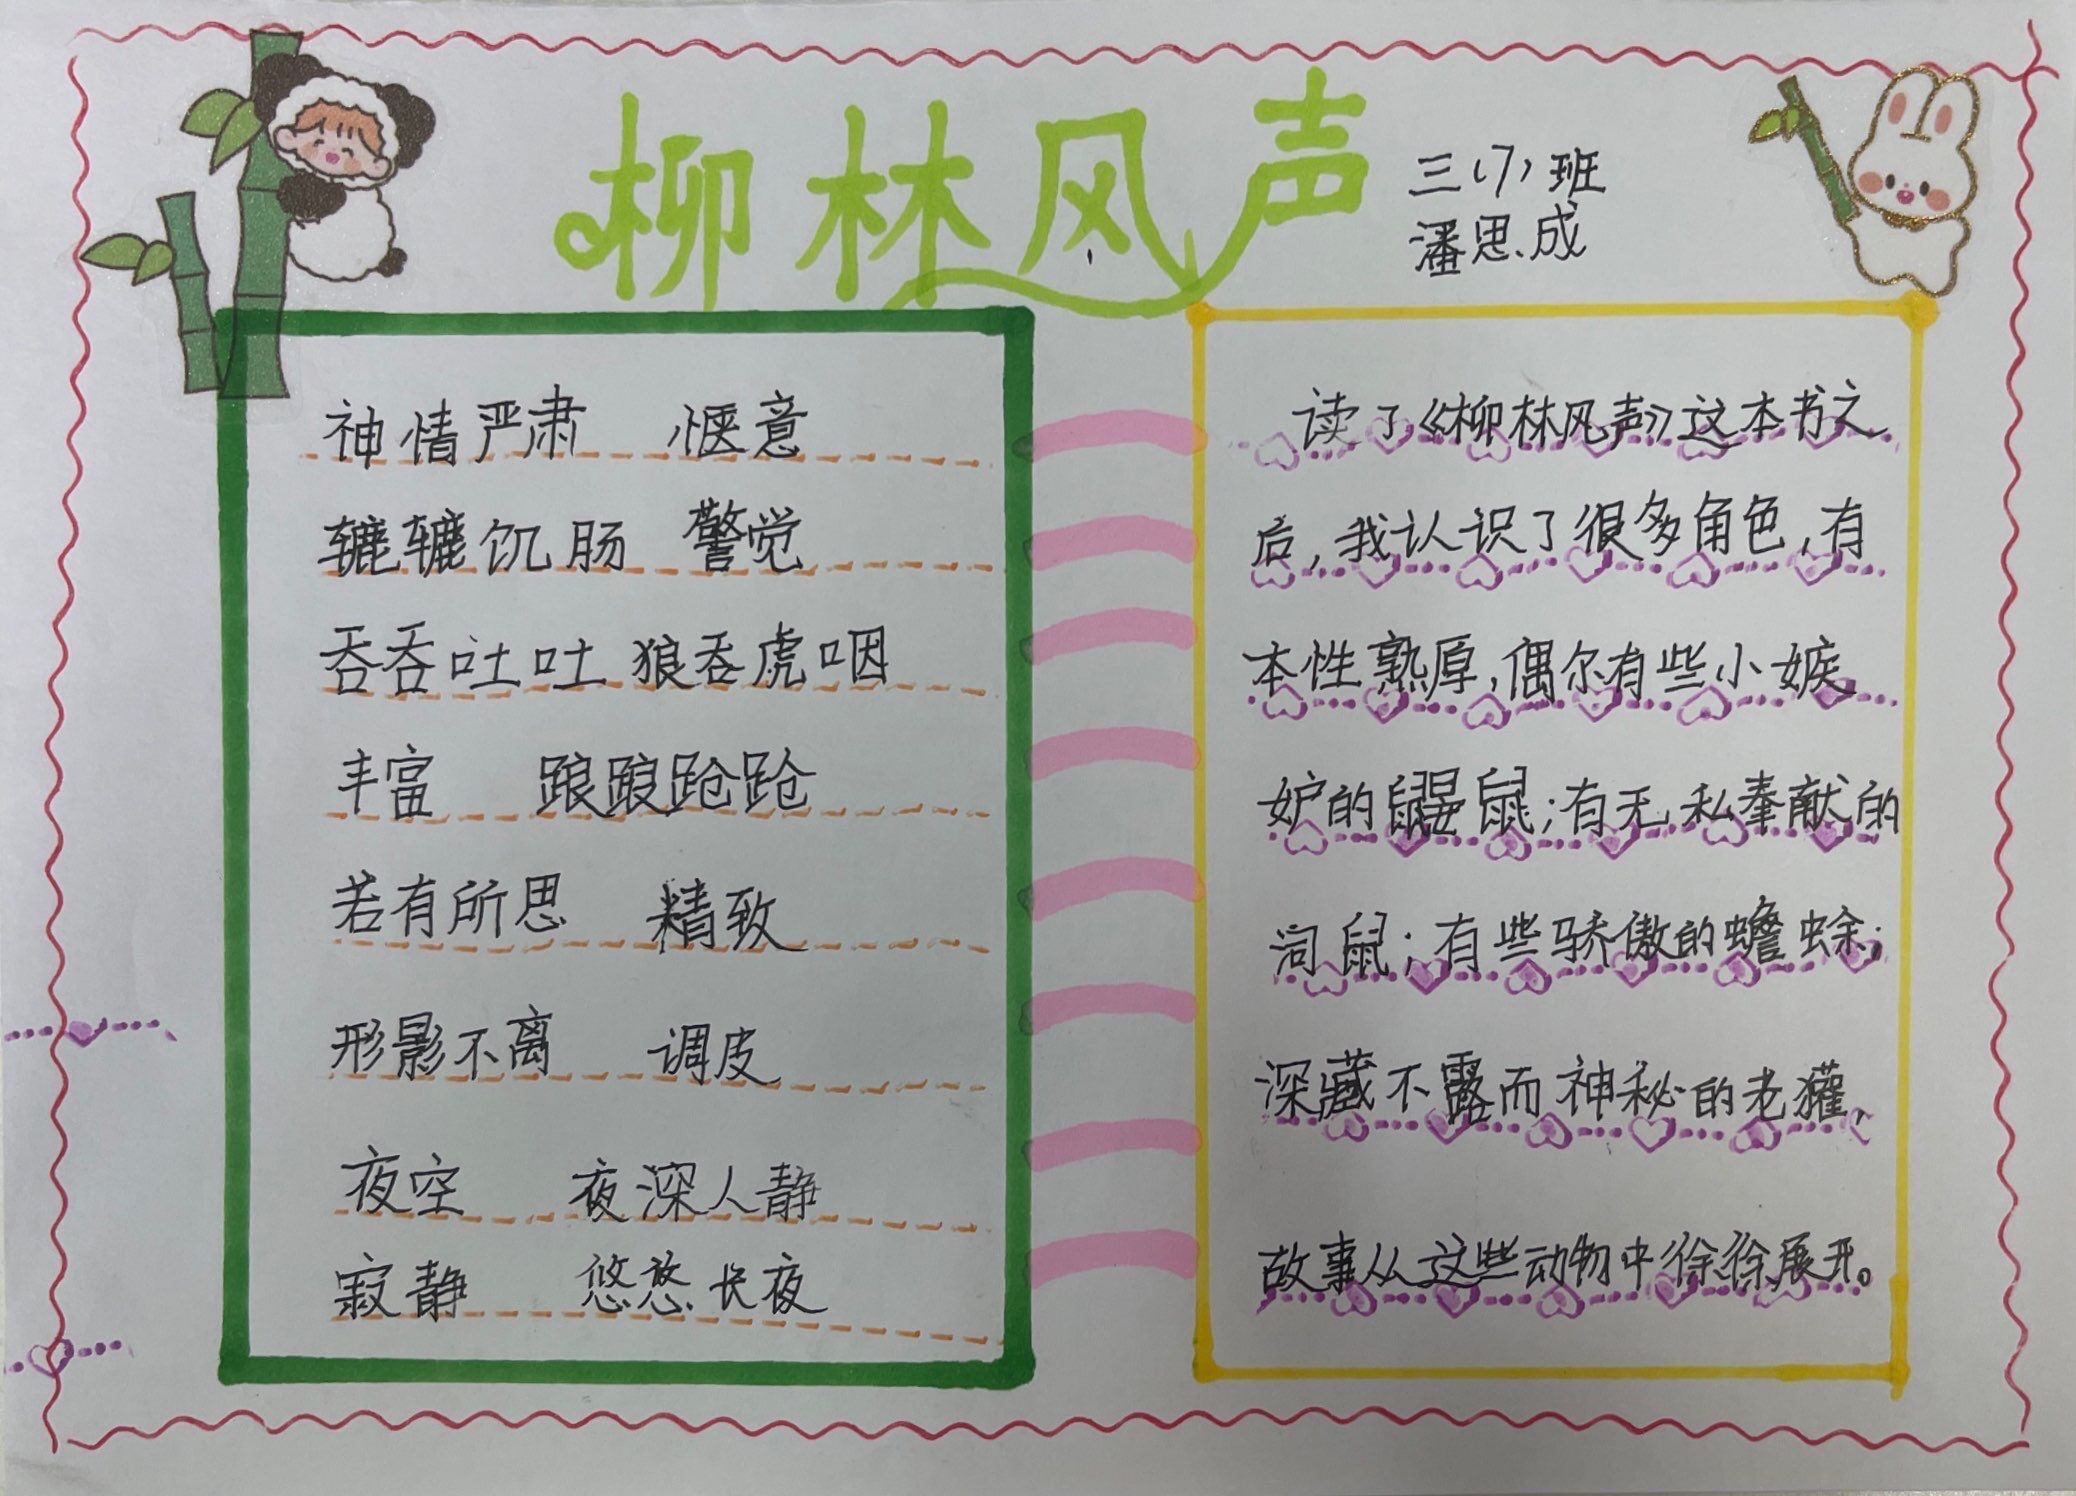 柳林风声
三(7)班
潘思成
神情严肃 惬意
辘辘饥肠 警觉
吞吞吐吐 狼吞虎咽
丰富 踉踉跄跄
若有所思 精致
形影不离 调皮
夜空 夜深人静
寂静 悠悠长夜
读了《柳林风声》这本书之
后,我认识了很多角色,有
本性熟厚,偶尔有些小嫉
妒的鼹鼠;有无私奉献的
河鼠;有些骄傲的蟾蜍;
深藏不露而神秘的老獾,
故事从这些动物中徐徐展开。